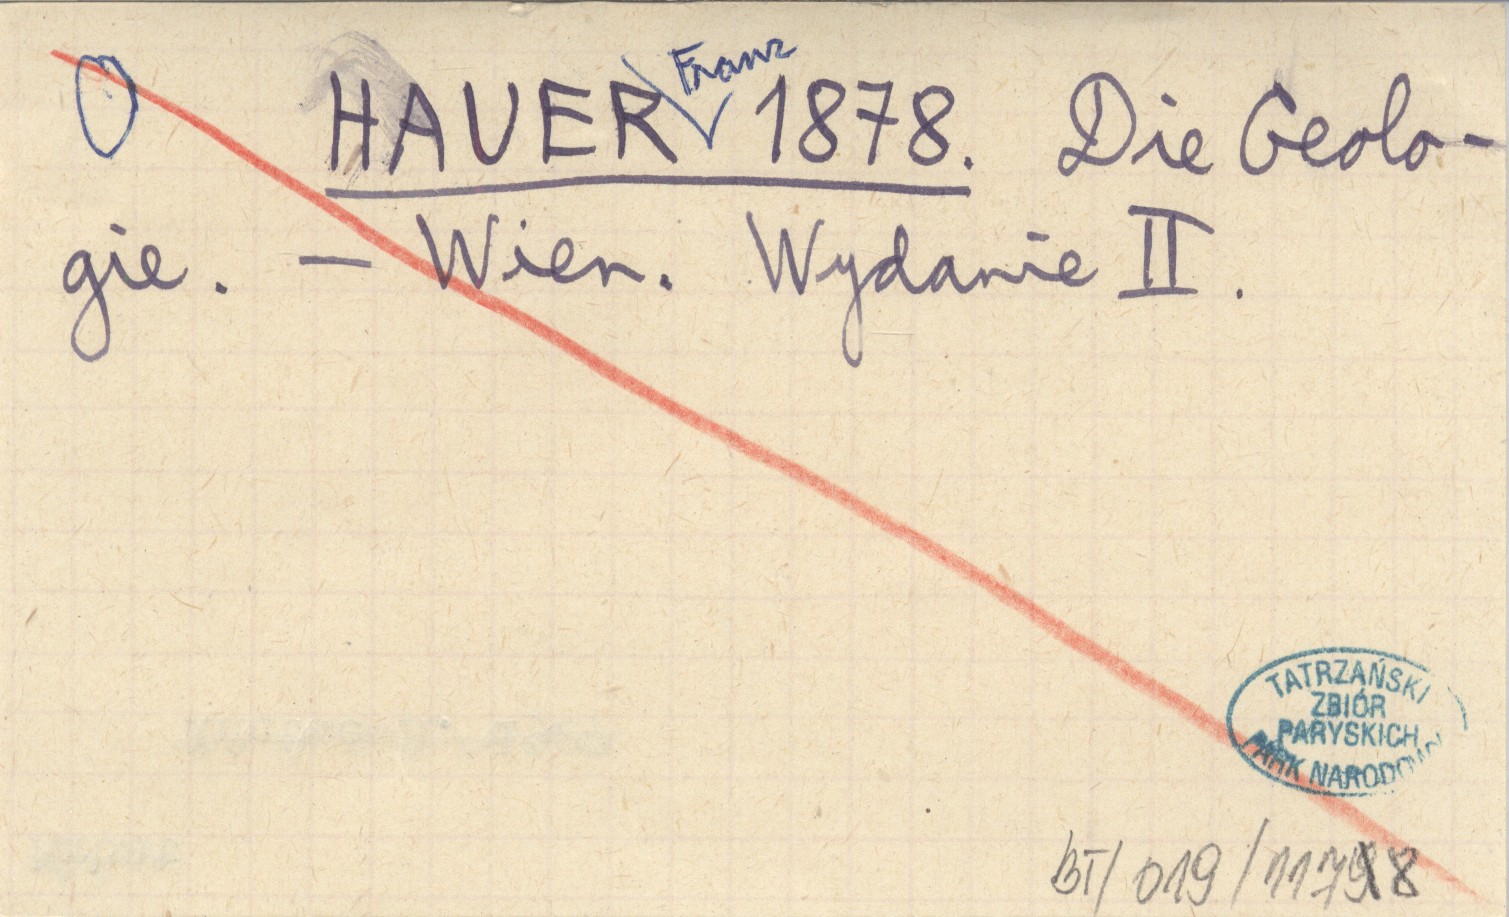 O HAUER Franz 1878. Die Geolo-
gie. — Wien. Wydanie II.
TATRZAŃSKI
ZBIÓR
PARYSKICH
PARK NARODOWY
BT/019/